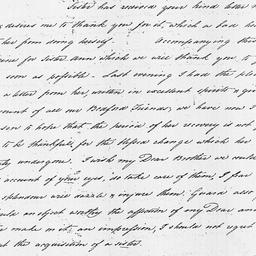 Sister has received your kind letter
desires me to thank you for it, which a bad
her from doing herself Accompanying this
for Sister Ann which we will thank you to
soon as possible - Last evening I had the
a letter from her, written in excellent spirits &
account of all our Bedford Friends, we have now
reason to hope that the period of her recovery is not
to be thankful for the blessed change which her
undergone. I wish my Dear Brother we could
account of your eyes, do take care of them, I fear
splendour will dazzle & injure them. Guard also
an object worthy the affection of my Dear
make on it; an impression, I should not regret
the acquisition of a sister.